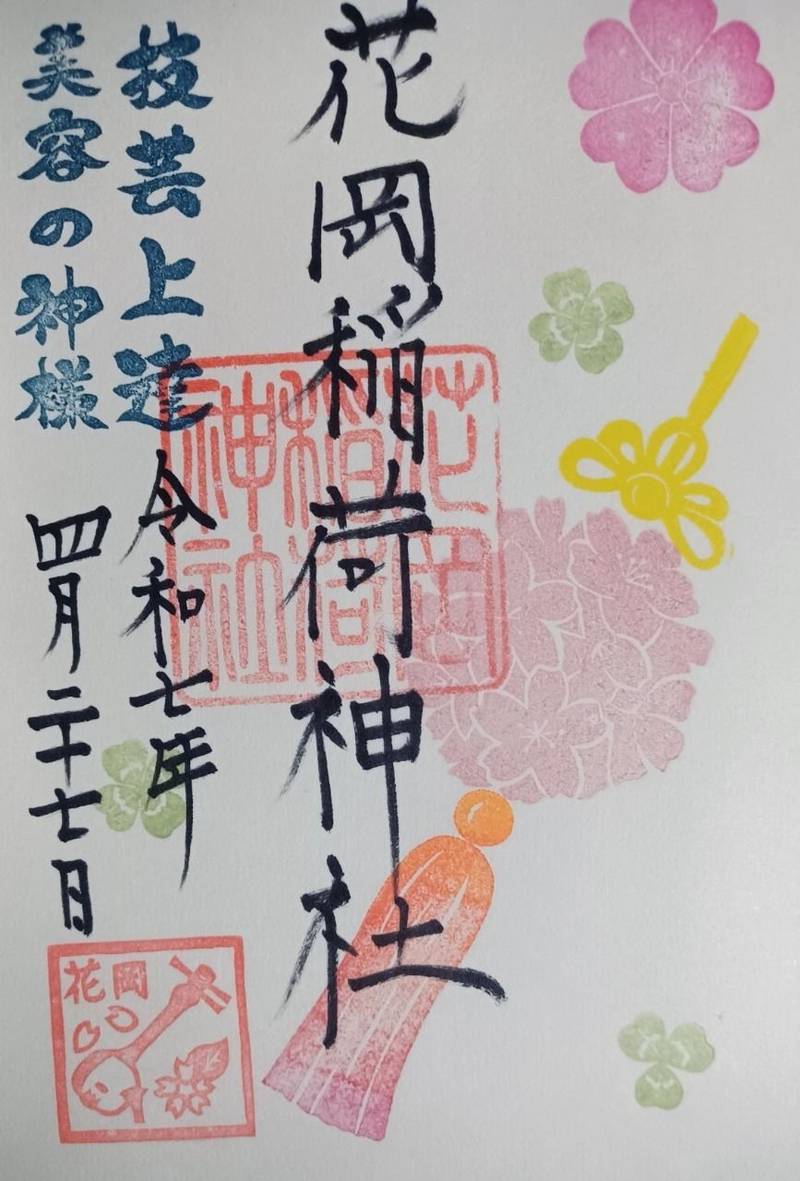 花岡稲荷神社
技芸上達
美容の神様
令和七年
四月二十七日
花岡稲荷神社
花岡